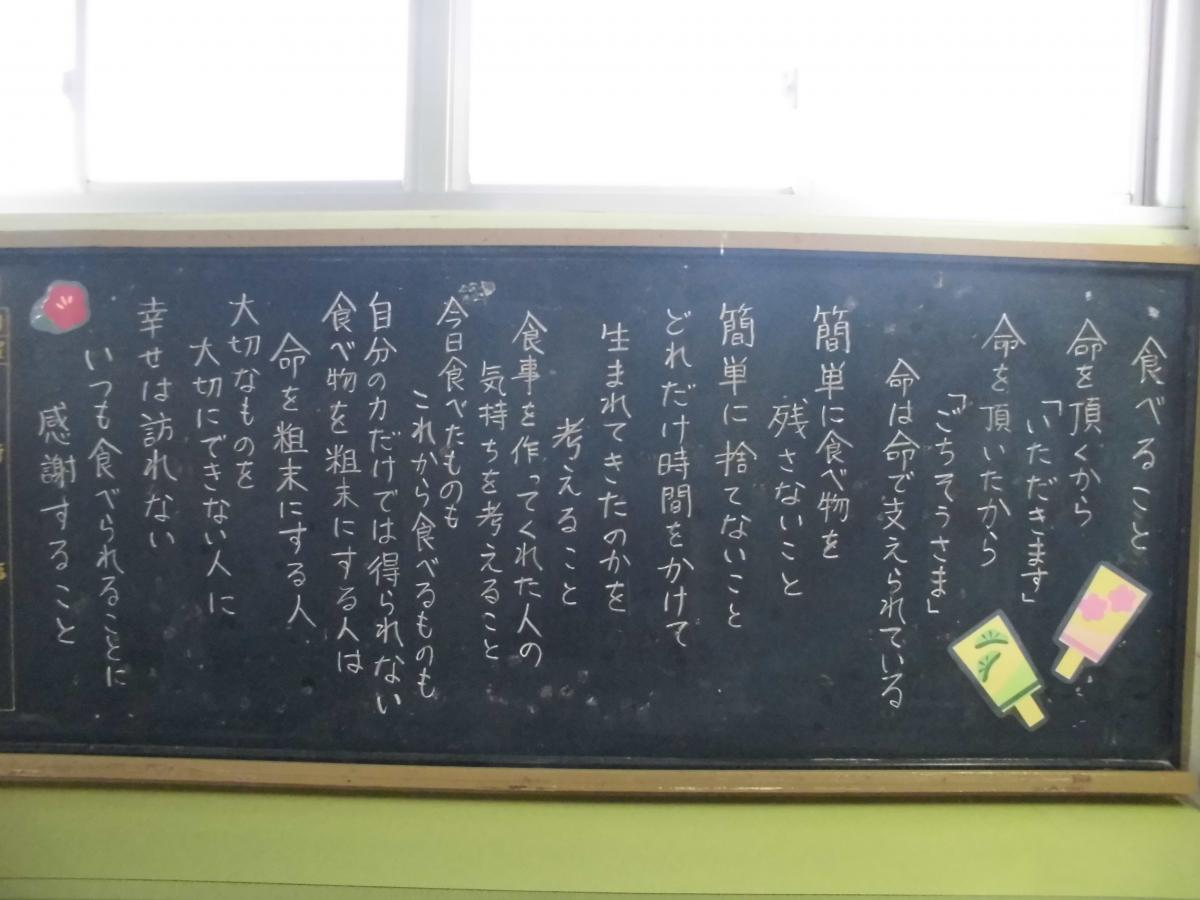 食べること
命を頂くから
「いただきます」
命を頂いたから
「ごちそうさま」
命は命で支えられている
簡単に食べ物を
残さないこと
簡単に捨てないこと
どれだけ時間をかけて
生まれてきたのかを
考えること
食事を作ってくれた人の
気持ちを考えること
今日食べたものも
これから食べるものも
自分の力だけでは得られない
食べ物を粗末にする人は
命を粗末にする人
大切なものを
大切にできない人に
幸せは訪れない
いつも食べられることに
感謝すること